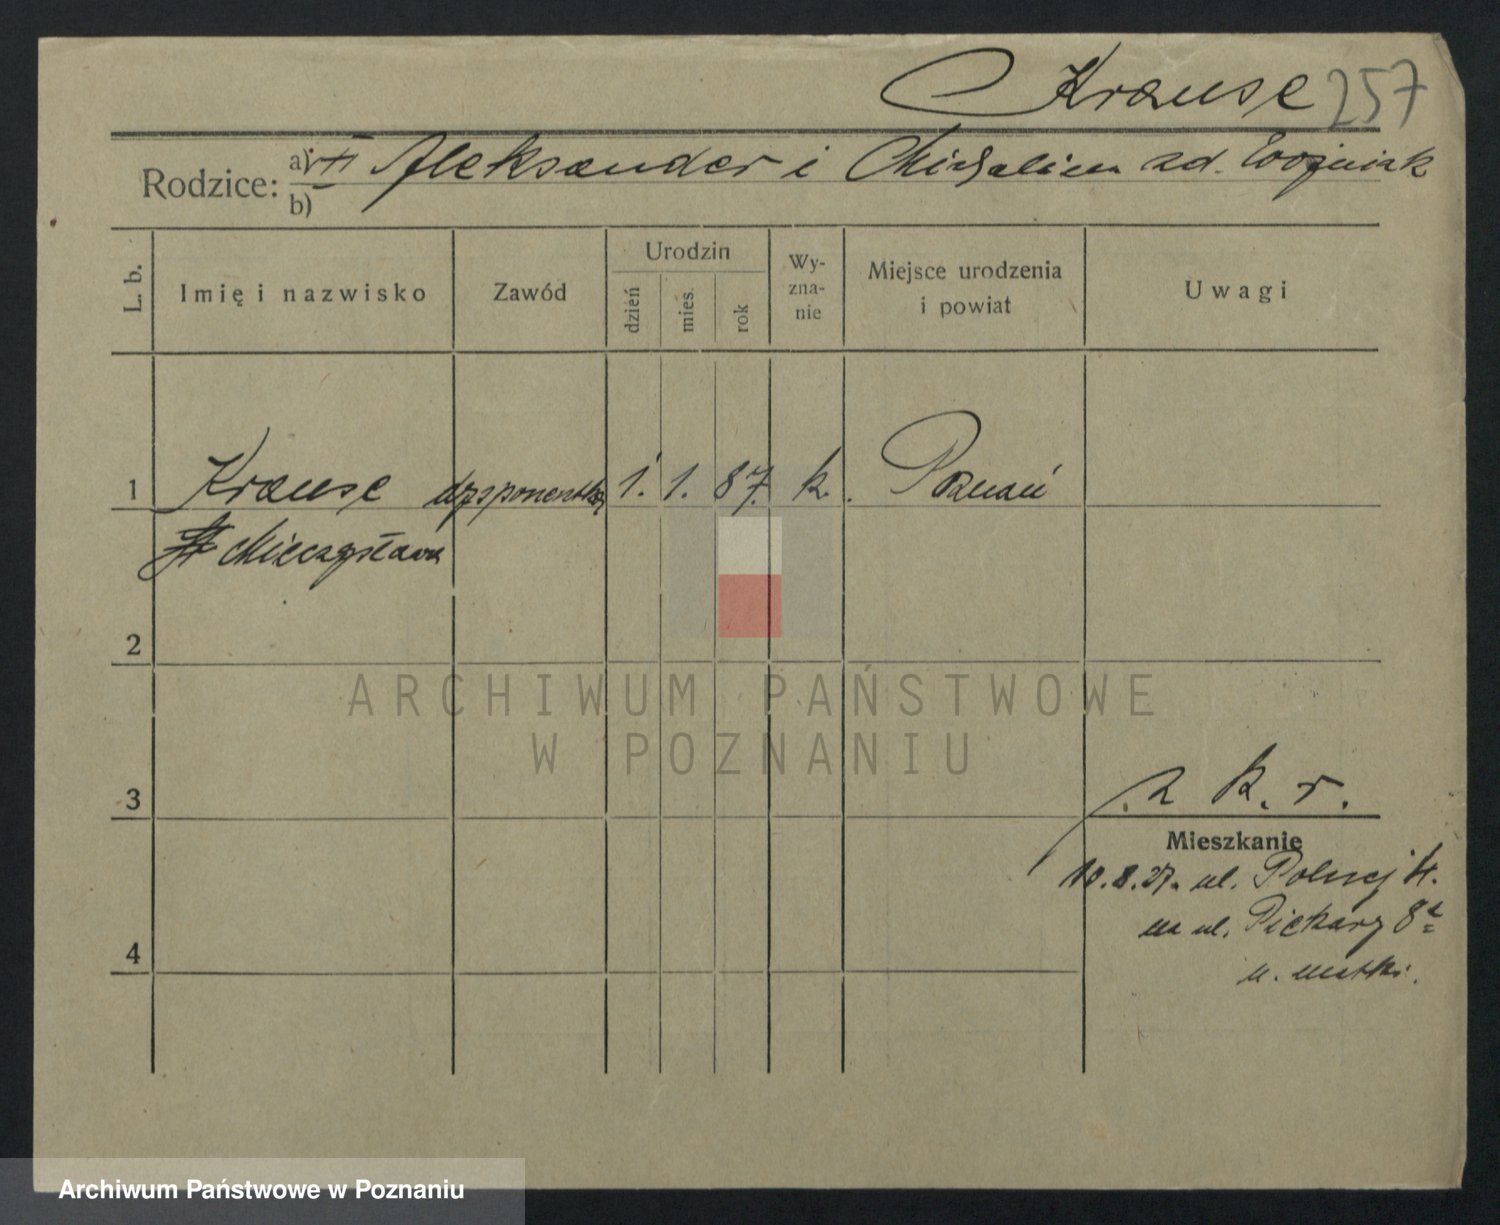 Krause 257
Rodzice: a) Aleksander i Michalina zd. Woźniak
b)
L. b.
Imię i nazwisko
Zawód
Urodzin
dzień
mies.
rok
Wy-
zna-
nie
Miejsce urodzenia
i powiat
Uwagi
1 Krause dysponentka 1. 1. 87. k. Poznań
Mieczysława
2
ARCHIWUM PAŃSTWOWE
W POZNANIU
3
z k. r.
Mieszkanie
10.8.27. ul. Polnej
na ul. Piekary 8
u. matki.
4
Archiwum Państwowe w Poznaniu